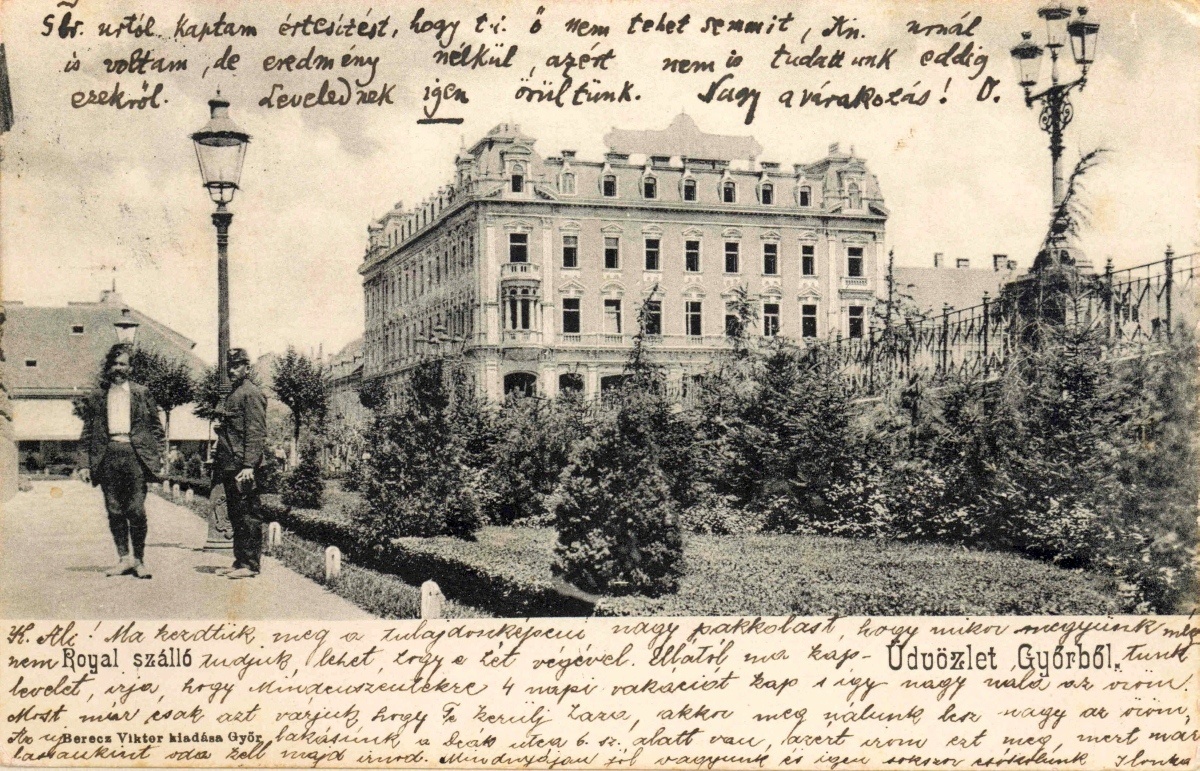 Gbr. urtól kaptam értesítést, hogy t.i. ő nem tehet semmit, Kn. urnál
is voltam, de eredmény nélkül, azért nem is tudattunk eddig
ezekről. Levelednek igen örültünk. Nagy a várakozás! O.
K. Ali! Ma kezdtük meg a tulajdonképeni nagy pakkolást, hogy mikor megyünk még
nem tudjuk, lehet, hogy e hét végével. Ellától ma kap- tunk
Royal szálló
Üdvözlet Győrből.
levelet, irja, hogy Mindenszentekre 4 napi vakációt kap s igy nagy nála az öröm.
Most már csak azt várjuk, hogy Te kerülj haza, akkor meg nálunk lesz nagy az öröm,
Az uj lakásunk a Deák utca 6. sz. alatt van, azért irom ezt meg, mert már
Berecz Viktor kiadása Győr
lassankint oda kell majd irnod. Mindnyájan jól vagyunk és igen sokszor csókolunk Ilonka